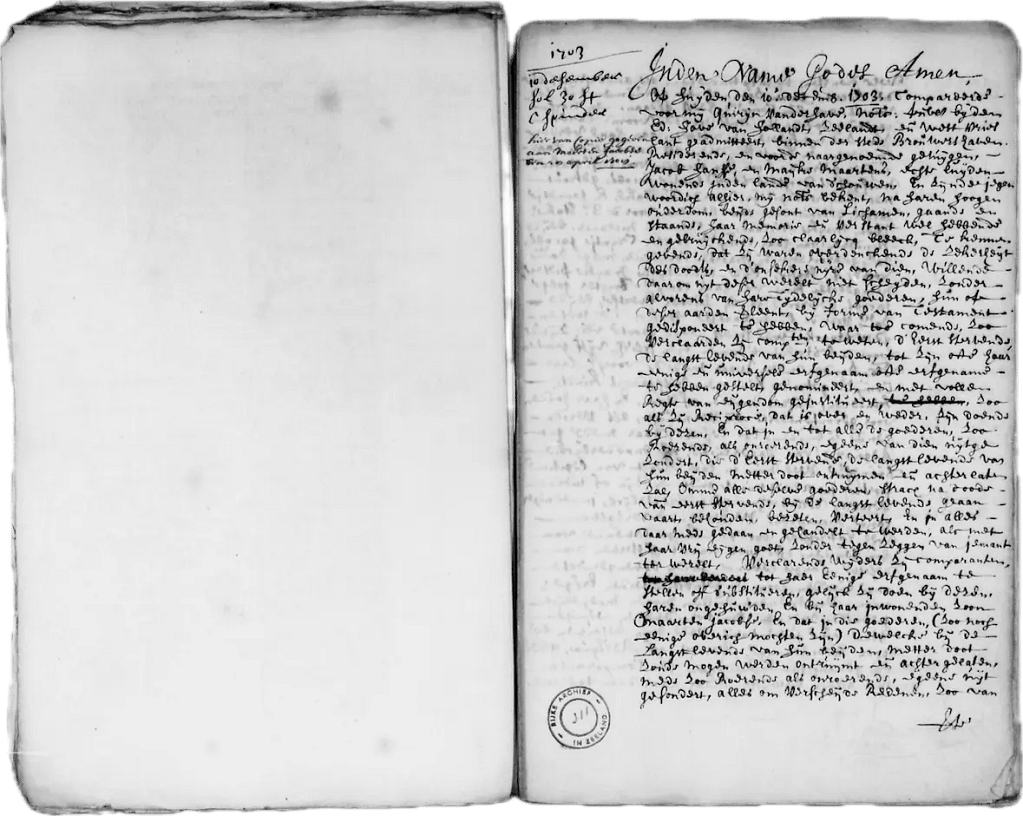 1703
10 desember
fol 30 st
C spinder
hier van Copie gegeven
aan Maerten Jacobse
den 10 april 1709
Inden Name Godes Amen
Op huijden den 10e december 1703: Compareerde
voor mij Quirijn vander have, Nots: Publ: bij den
Ed: hove van hollandt, Zeelandt, en West Vries
lant geadmitteert, binnen der stede Brouwershaven
Residerende, en voor de naargenoemde getuijgen,
Jacob Hansse, en Maijke Maartens, echte luijden
wonende inden lande van Schouwen, En zijnde jegen
woordich alhier, mij Nots bekent, na haren hoogen
ouderdom, beijde gesont van Lichamen, gaande en
staande, haar memorie en verstant wel hebbende
en gebruijckende, soo claarlijcq bleeck, Te kennen
gevende, dat zij waren overdenckende de sekerheijt
des doodts, en d'onsekere uijre van dien, willende
daarom uijt deser werelt niet scheijden, sonder
alvorens van hare Tijdelijcke goederen, hun op
deser aarden verleent, bij forme van Testament
gedisponeert te hebben, waar toe comende, soo
verclaarden zij compten, te weten, d'eerst stervende,
de langst levende van hun beijden, tot zijn ofte haar
eenige en universele erfgenaam ofte erfgename
te hebben gestelt, genomineert, en met vollen
Regte van eijgendom geinstitueert, te hebben, soo
als zij Reciproce, dat is over en weder, zijn doende
bij desen, En dat in en tot alle de goederen, soo
Roerende, als onroerende, egeene van dien uijtge
sondert, die d'eerst stervende, de langst levende van
hun beijden metter doot ontruijmen en achterlaten
sal, Omme alle deselve goederen, stracx na doode
van eerst stervende, bij de langst levende geaan
vaart, behouden, beseten, verteert, En in alles
daar mede gedaan en gehandelt te werden, als met
haar vrij eijgen goet, sonder tegen seggen van jemant
ter werelt, Verclarende wijders zij comparanten,
tot haer eenige erfgenaam te
stellen off substitueren, gelijck zij doen bij desen,
haren ongehuwden En bij haar inwonenden soon
Maarten Jacobse, En dat in die goederen, (soo noch
eenige overich mochten zijn) dewelcke bij de
Langst levende van hun beijden, metter doot
soude mogen werden ontruijmt en achtergelaten,
mede soo Roerende als onroerende, egeene uijt
gesondert, alles om verscheijde Redenen, soo van
RIJKS ARCHIEF
IN ZEELAND